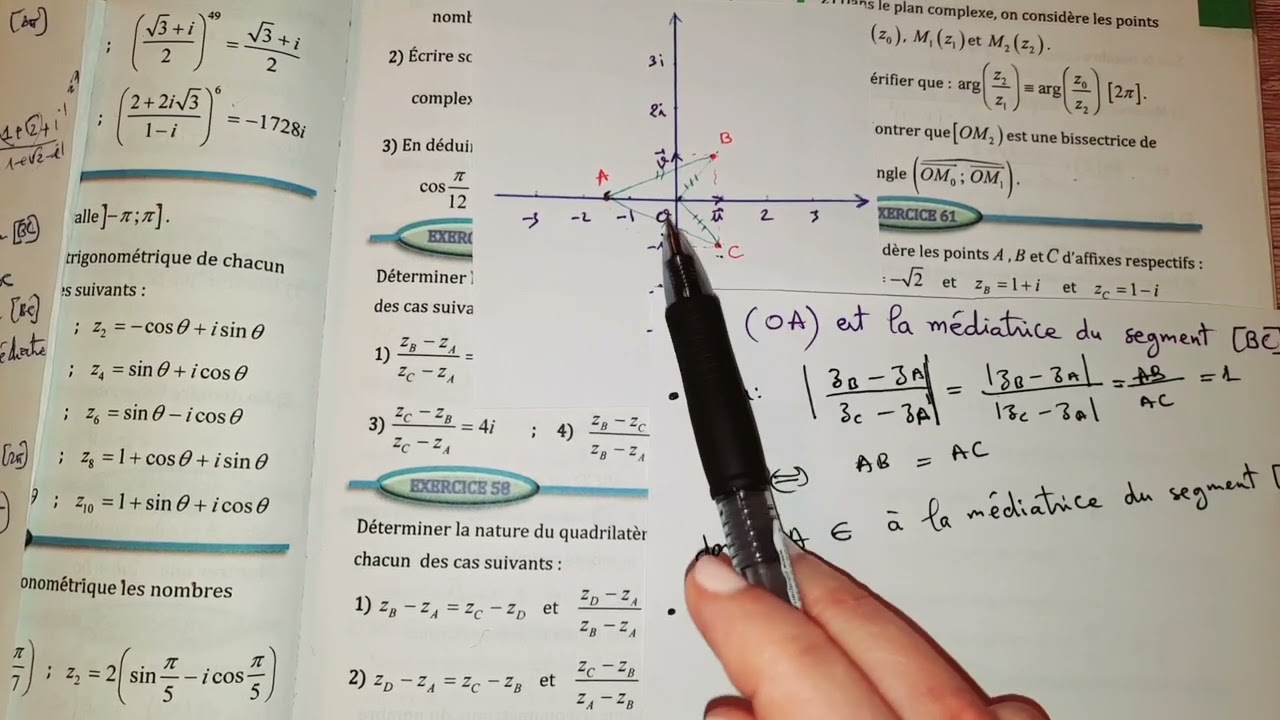 [2π]
; ((√3+i)/2)^49 = (√3+i)/2
; ((2+2i√3)/(1-i))^6 = -1728i
alle ]-π;π].
trigonométrique de chacun
s suivants :
; z₂ = -cosθ + i sinθ
; z₄ = sinθ + i cosθ
; z₆ = sinθ - i cosθ
; z₈ = 1 + cosθ + i sinθ
; z₁₀ = 1 + sinθ + i cosθ
onométrique les nombres
π/7) ; z₂ = 2(sin π/5 - i cos π/5)
[BC]
[BC]
[2π]
nomb
2) Écrire so
complex
3) En déduir
cos π/12
EXERC
Déterminer l
des cas suiva
1) (z_B - z_A)/(z_C - z_A) =
3) (z_C - z_B)/(z_C - z_A) = 4i ; 4) (z_B - z_C)/(z_B - z_A)
EXERCICE 58
Déterminer la nature du quadrilatèr
chacun des cas suivants :
1) z_B - z_A = z_C - z_D et (z_D - z_A)/(z_B - z_A)
2) z_D - z_A = z_C - z_B et (z_C - z_B)/(z_A - z_B)
3i
2i
B
A
-3 -2 -1 O 2 3
C
s le plan complexe, on considère les points
(z₀), M₁(z₁) et M₂(z₂).
érifier que : arg(z₂/z₁) ≡ arg(z₀/z₂) [2π].
ontrer que [OM₂) est une bissectrice de
ngle (OM₀ ; OM₁).
XERCICE 61
dère les points A, B et C d'affixes respectifs :
: -√2 et z_B = 1+i et z_C = 1-i
(OA) est la médiatrice du segment [BC]
: |(z_B - z_A)/(z_C - z_A)| = |z_B - z_A|/|z_C - z_A| = AB/AC = 1
⇔ AB = AC
A ∈ à la médiatrice du segment [